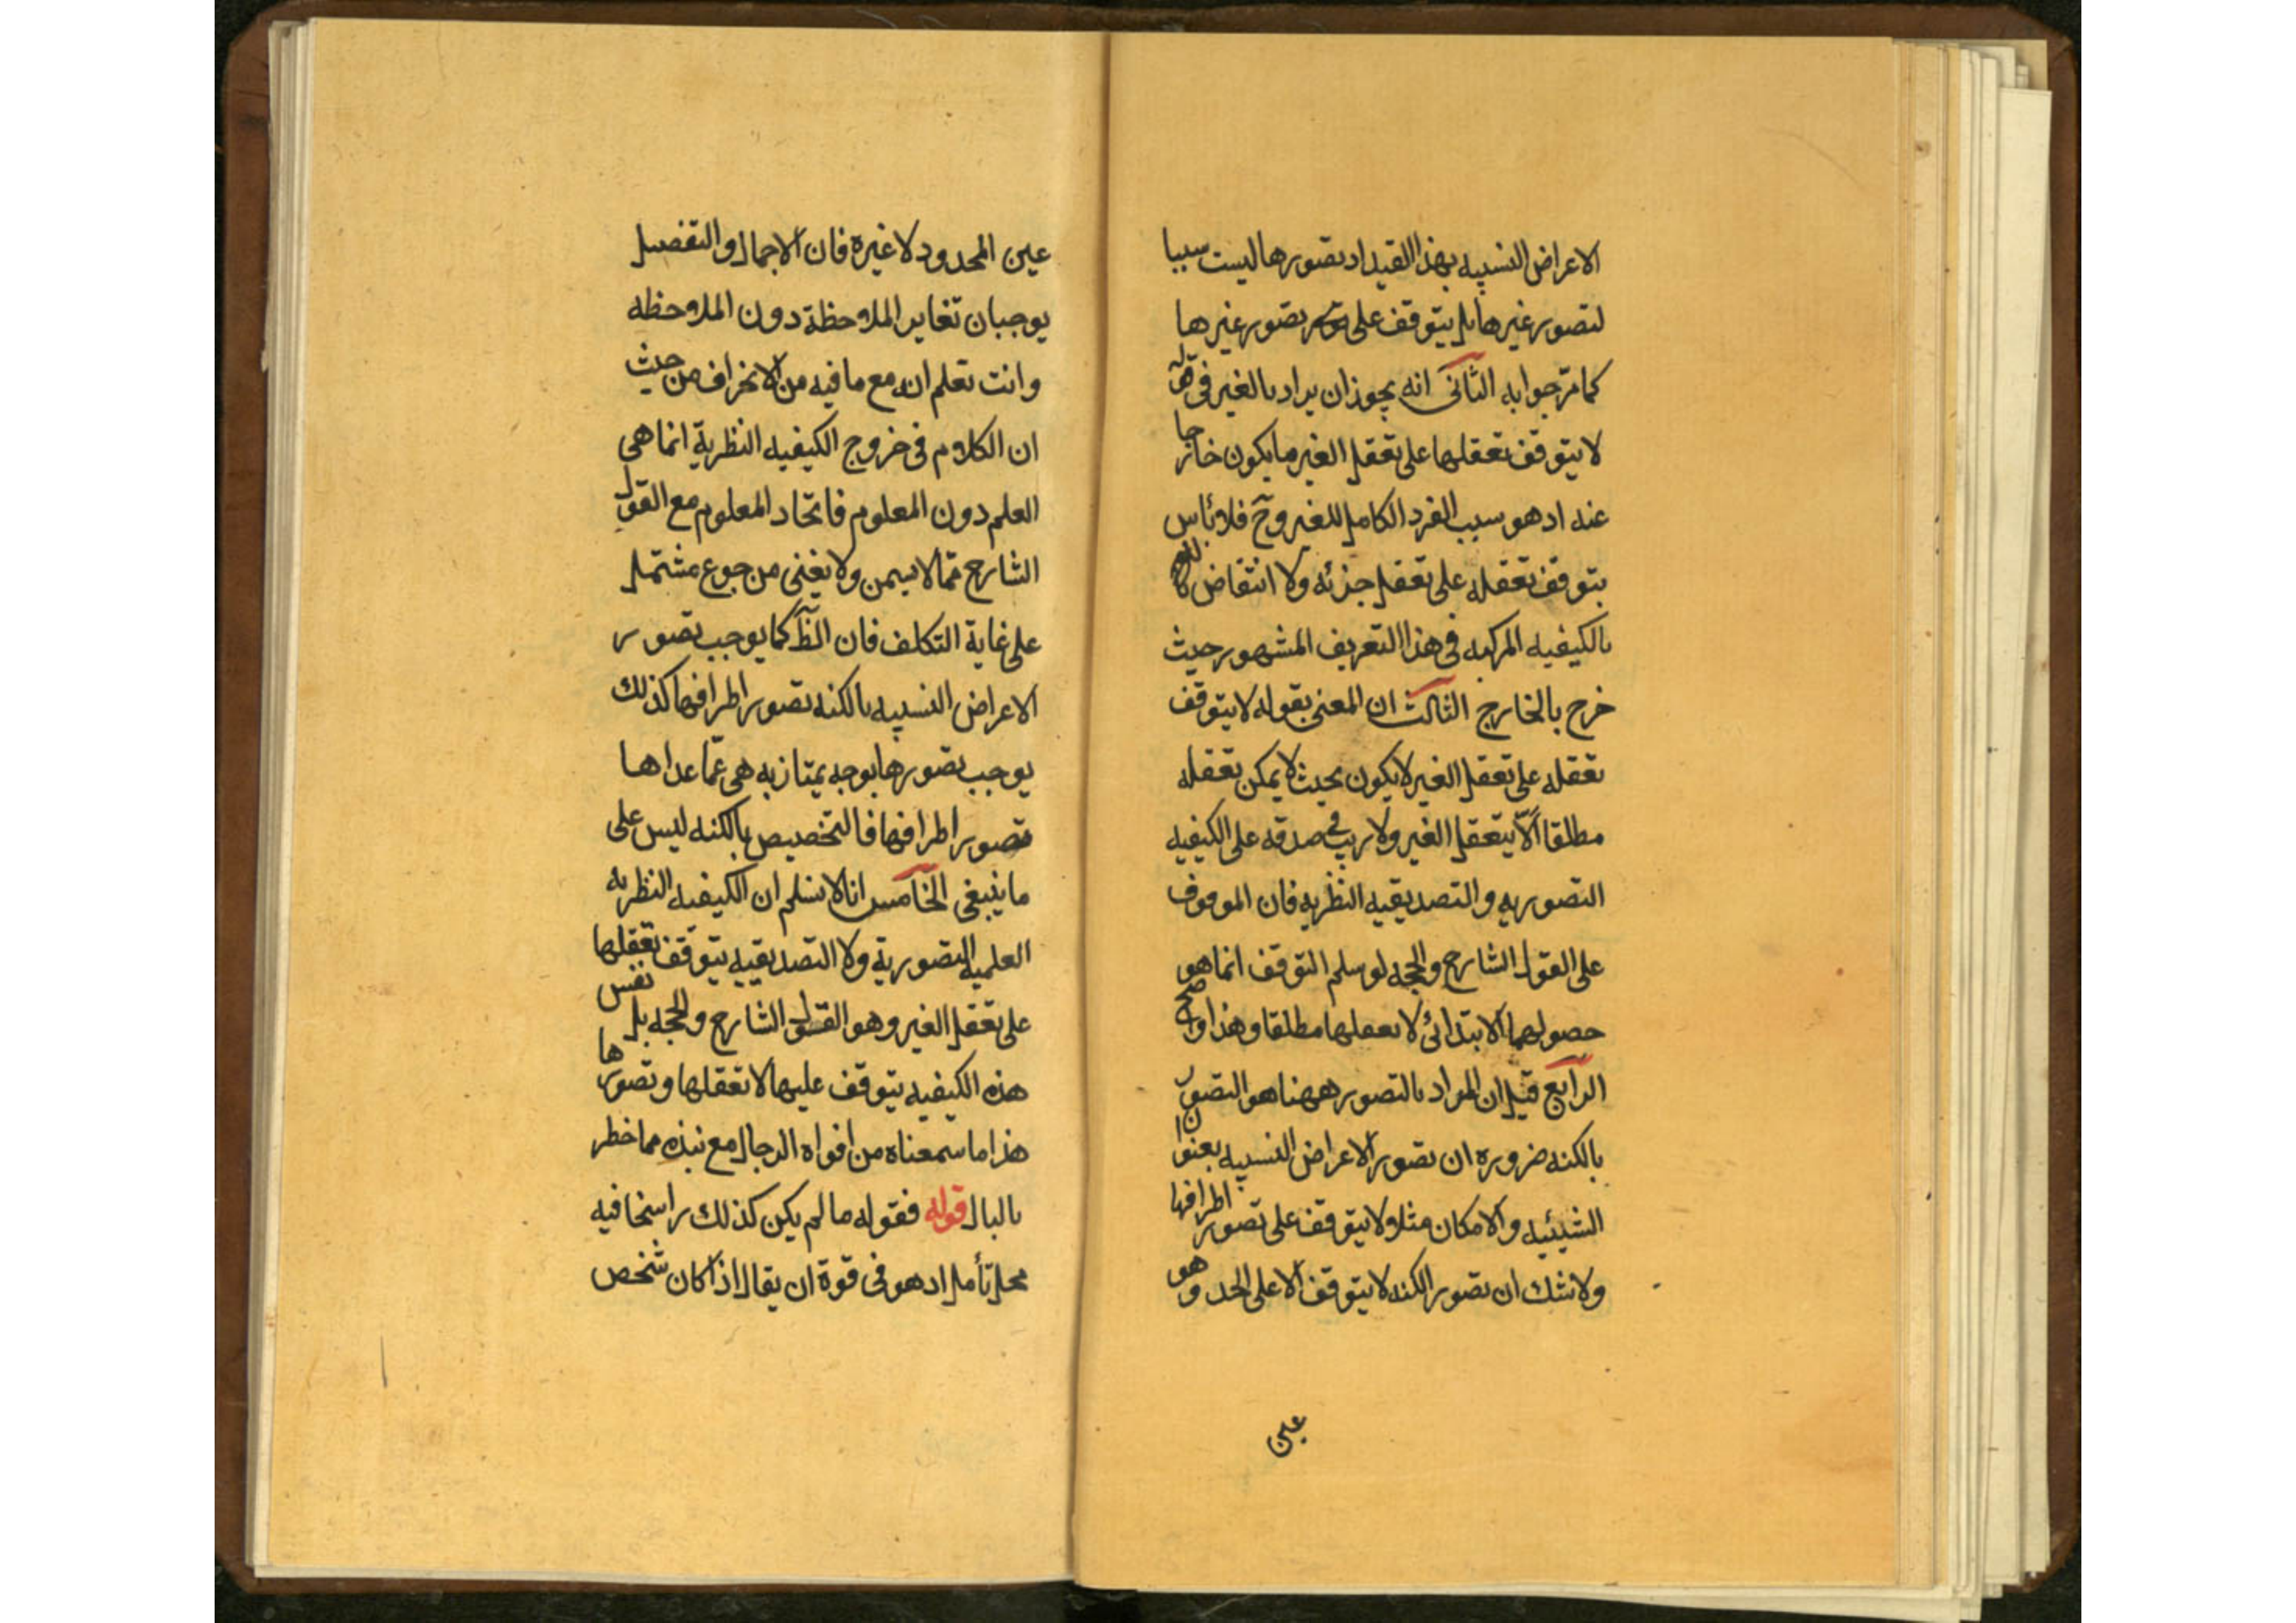 الاعراض النسبيه بهذا القيد اذ تصورها ليست سببا
لتصور غيرها بل يتوقف على تصور غيرها
كما مرّ جوابه الثانى انه يجوز ان يراد بالغير فى قوله
لا يتوقف تعقلها على تعقل الغير ما يكون خارجا
عنه اذ هو سبب الفرد الكامل للغير وح فلا بأس
بتوقف تعقله على تعقل جزئه ولا انتقاض
بالكيفيه المركبه فى هذا التعريف المشهور حيث
خرج بالخارج الثالث ان المعنى بقوله لا يتوقف
تعقله على تعقل الغير لا يكون بحيث لا يمكن تعقله
مطلقا الّا بتعقل الغير ولا ريب فى صدقه على الكيفيه
التصوريه والتصديقيه النظريه فان الموقوف
على القول الشارح والحجه لو سلم التوقف انما هو
حصولهما الابتدائى لا تعقلها مطلقا وهذا واضح
الرابع قيل ان المراد بالتصور ههنا هو التصور
بالكنه ضروره ان تصور الاعراض النسبيه بعنوان
الشيئيه والامكان مثلا لا يتوقف على تصور اطرافها
ولا شك ان تصور الكنه لا يتوقف الا على الحد وهو
عين
عين المحدود لا غيره فان الاجمال والتفصيل
يوجبان تغاير الملاحظة دون الملاحظه
وانت تعلم انه مع ما فيه من الانحراف من حيث
ان الكلام فى خروج الكيفيه النظرية انما هى
العلم دون المعلوم فاتحاد المعلوم مع القول
الشارح ممّا لا يسمن ولا يغنى من جوع مشتمل
على غاية التكلف فان الظ كما يوجب تصور
الاعراض النسبيه بالكنه تصور اطرافها كذلك
يوجب تصورها بوجه يمتاز به هى عمّا عداها
تصور اطرافها فالتخصيص بالكنه ليس على
ما ينبغى الخامس انا لا نسلم ان الكيفيه النظريه
العلميه التصورية ولا التصديقيه يتوقف تعقلها
على تعقل الغير وهو القول الشارح والحجه بل نفس
هذه الكيفيه يتوقف عليها لا تعقلها وتصورها
هذا ما سمعناه من افواه الرجال مع نبذه مما خطر
بالبال قوله فقوله ما لم يكن كذلك راسخا فيه
محل تأمل اذ هو فى قوة ان يقال اذا كان شخص